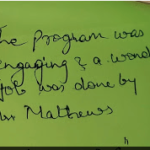 The Program was
engaging & a wond
job was done by
Mr Mathews
"